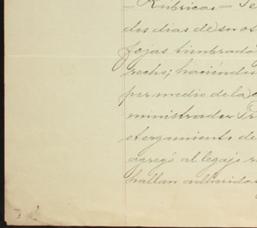 — Rubricas — Te
dos dias de
fojas timbrada
hecho; haciendo
por medio de la
ministrador
otorgamiento de
agregó al legajo
hallan adheridas